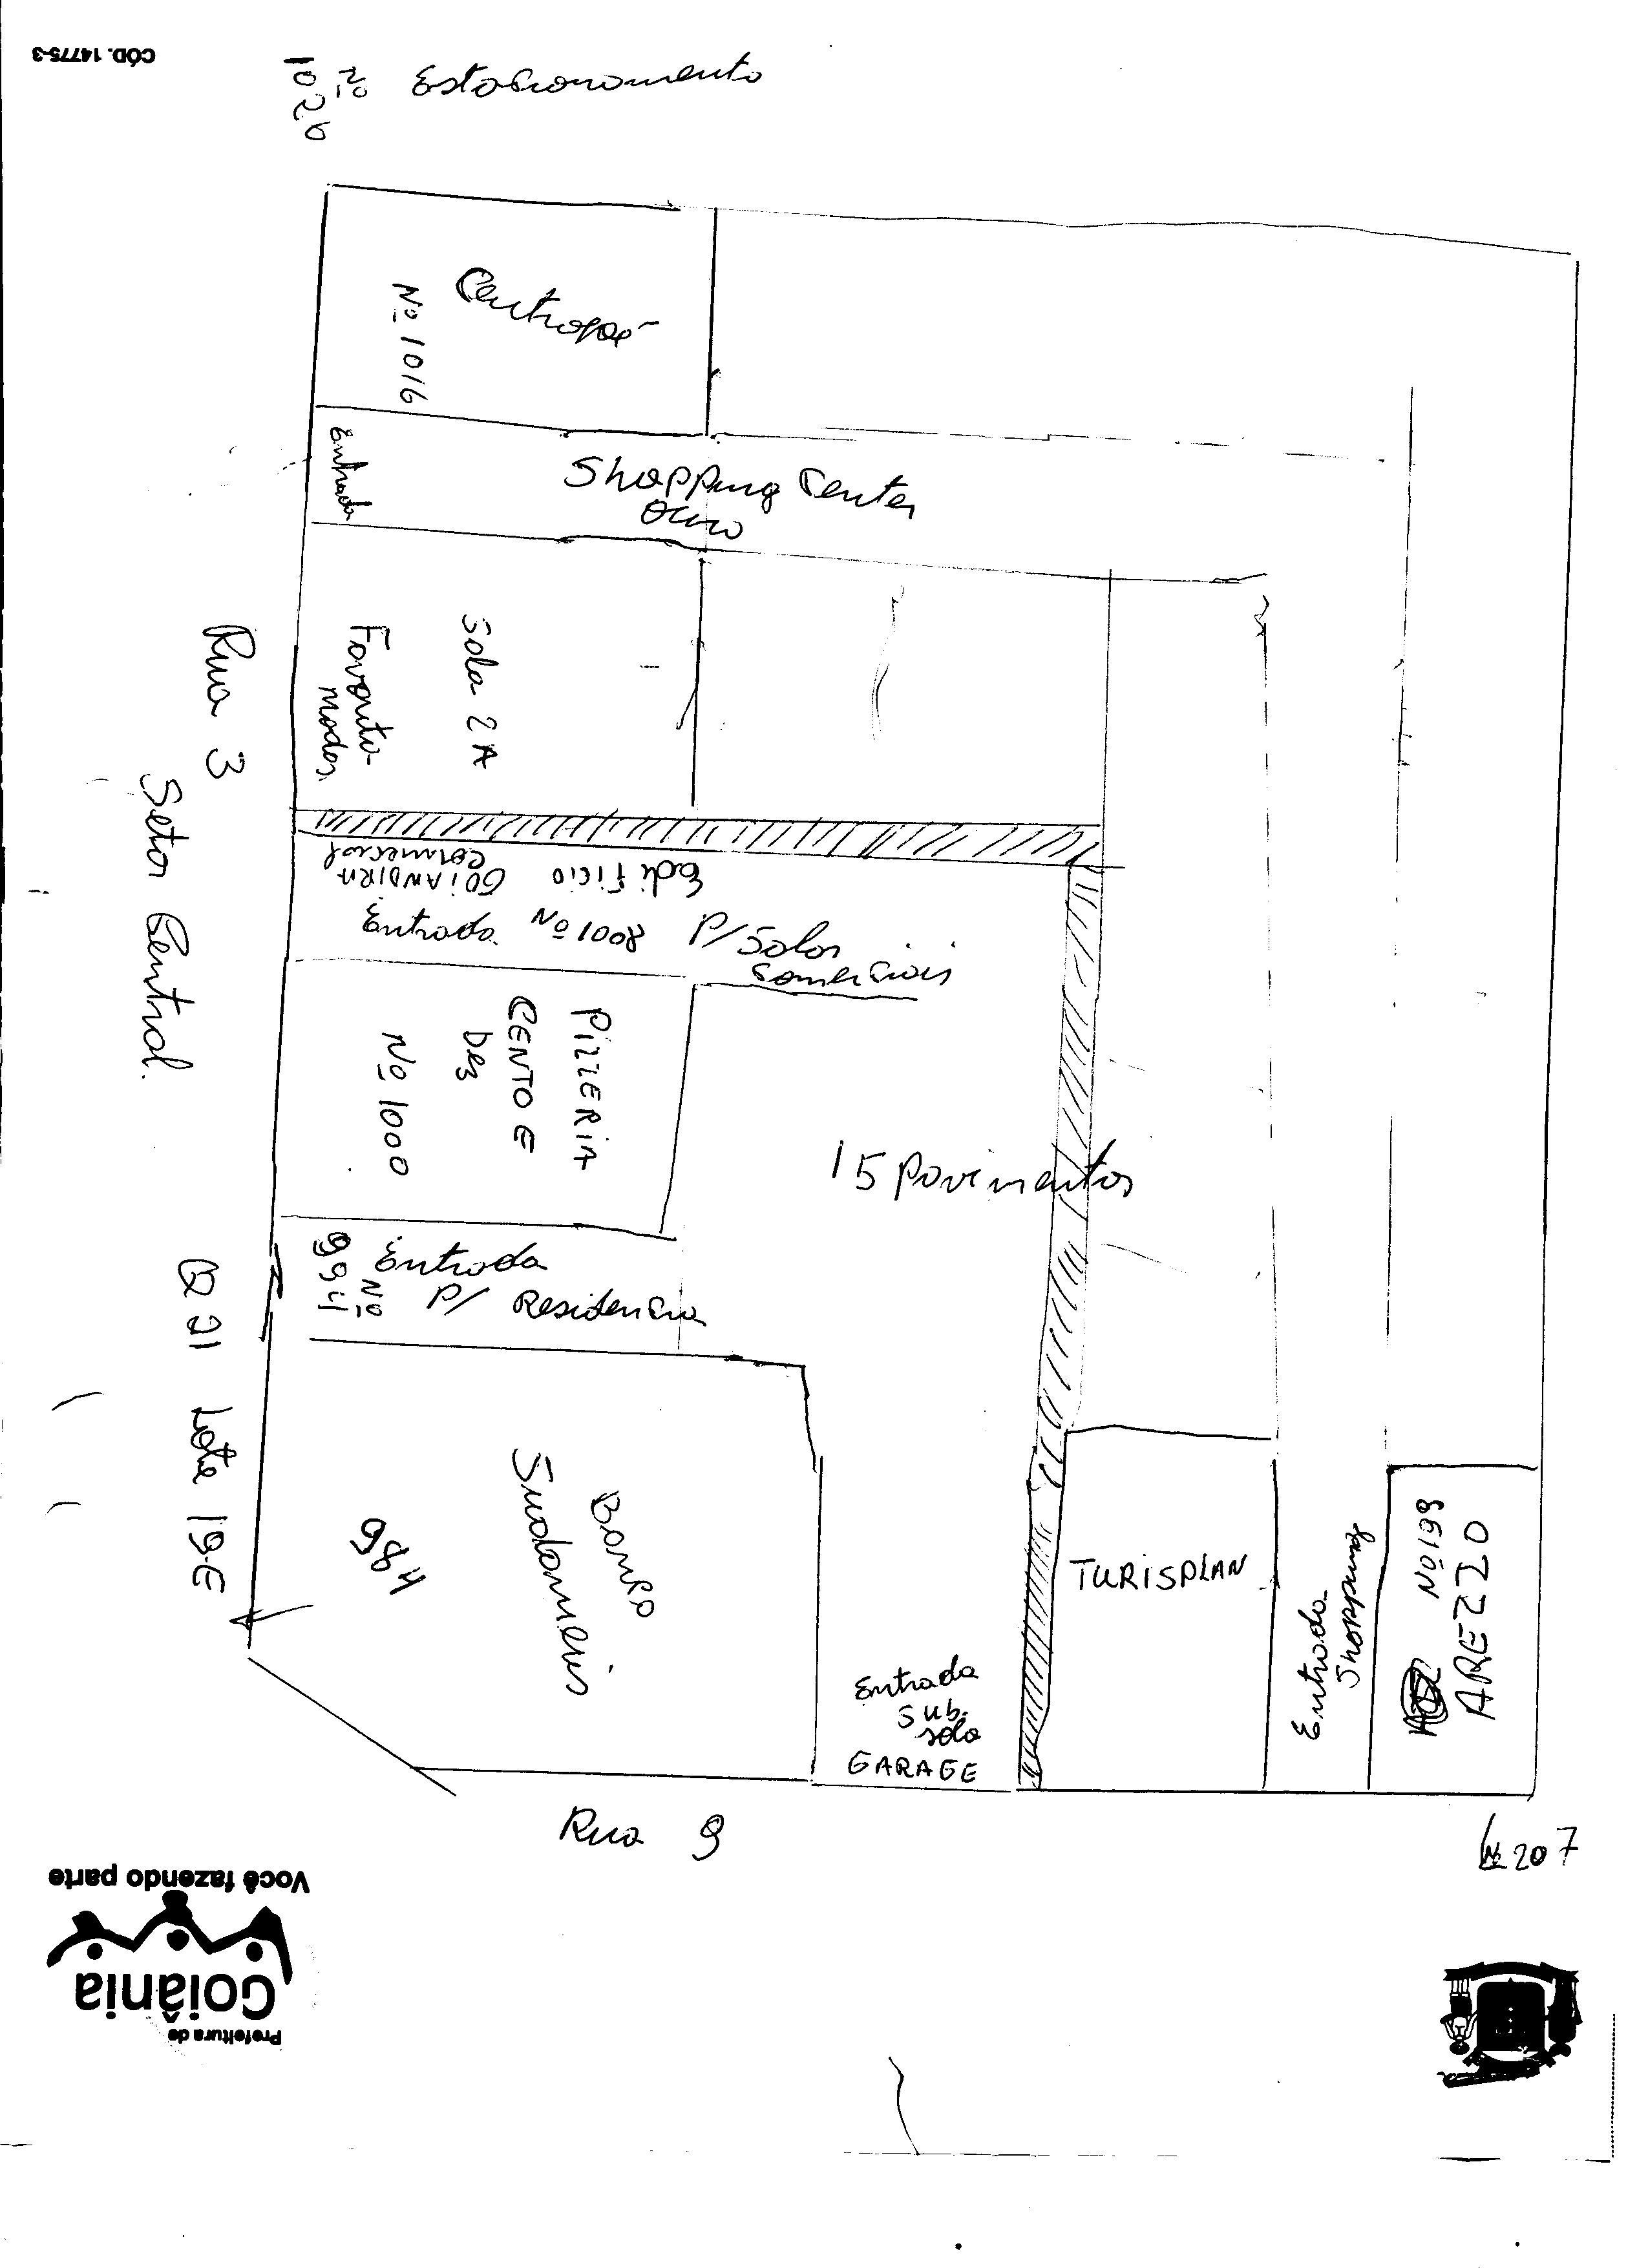 CÓD. 14775-3
Nº
1026
Estacionamento
Centropé
Nº 1016
Entrada
Shopping Center
Ouro
Sala 2A
Favorita
Modas.
Rua 3
Setor Central.
Q 21 Lote 19-E
Edificio GOIANDIRA
Comercial
Entrada Nº 1008 P/ Salas
Comerciais
PIZZERIA
CENTO E
DEZ
Nº 1000
15 pavimentos
Entrada
Nº
994
P/ Residencia
Banco
Sudameris
984
Entrada
Sub.
solo
GARAGE
TURISPLAN
Entrada
Shopping
Nº 199
AREZZO
Rua 9
Nº 207
Você fazendo parte
Goiânia
Prefeitura de